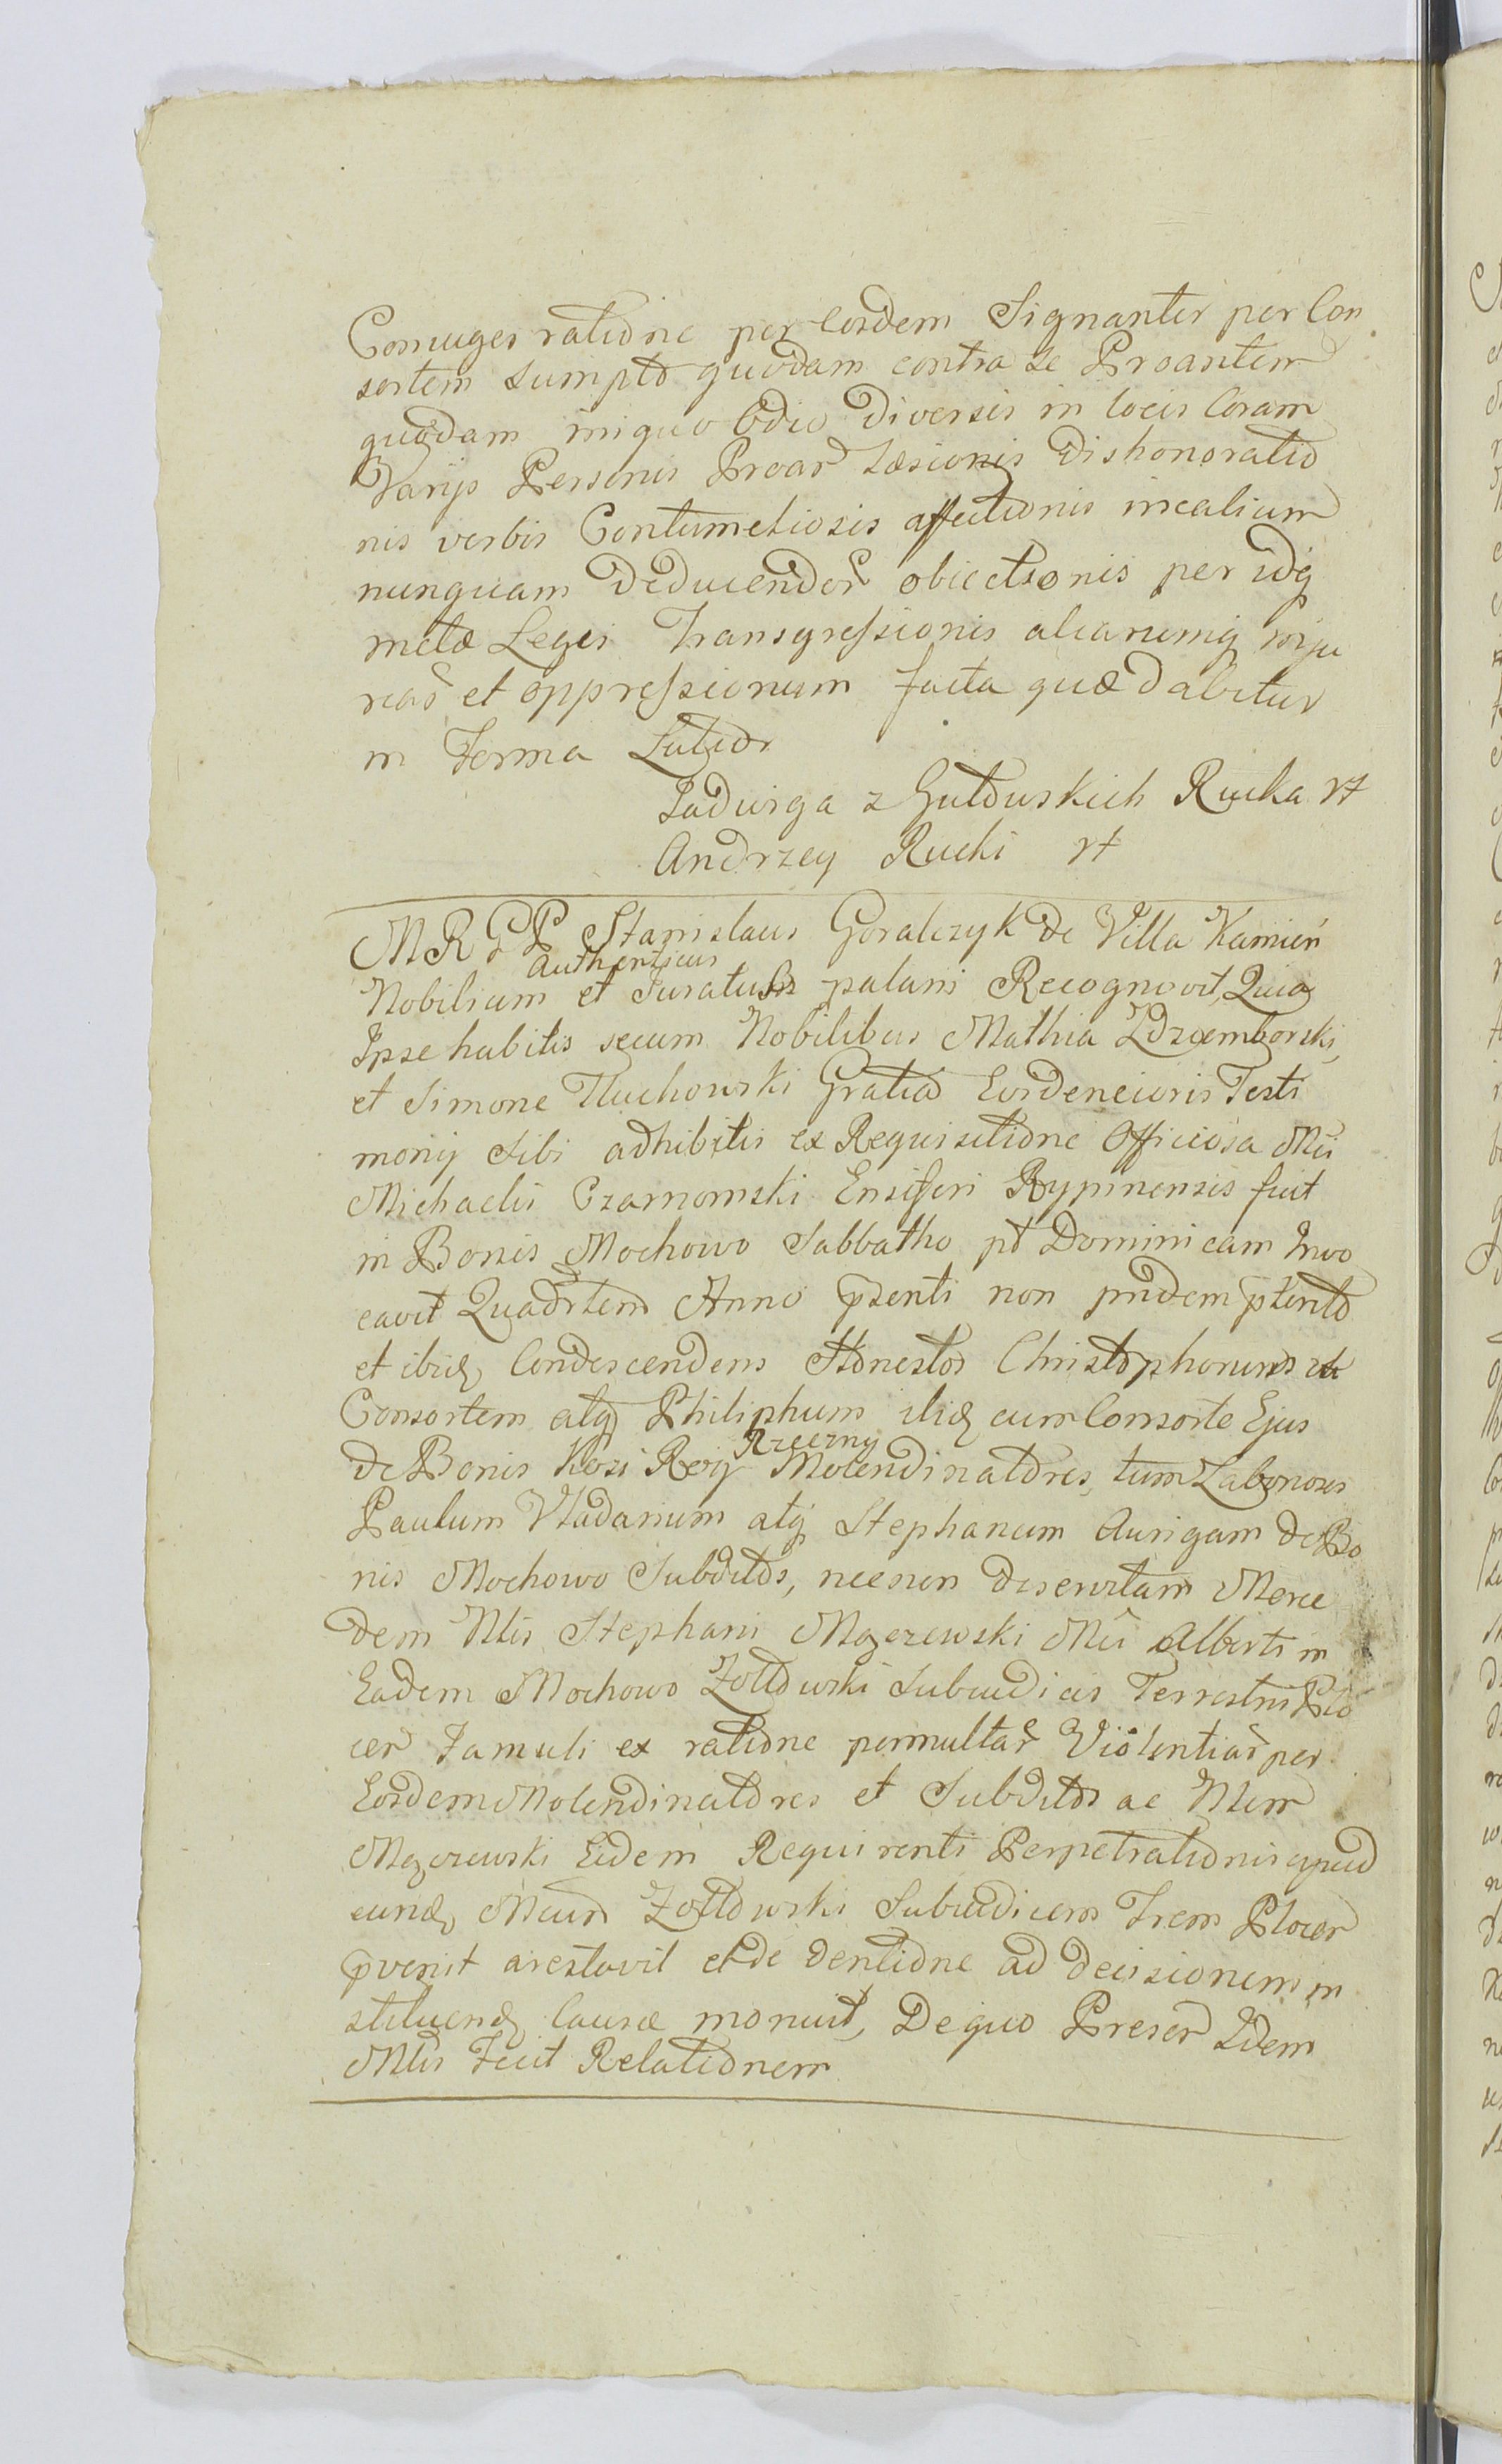 Coniuges ratione per Eosdem Signanter per Con
sortem sumpto quodam contra se Proantem
quodam iniquo Odio Diversis in locis Coram
Varijs Personis Proar Læsionis Dishonoratio
nis verbis Contumeliosis affectionis in
nunquam Deducendor obiectionis per idq
metæ Legis Transgressionis aliarumq inju
riar et oppressionum facta quæ dabitur
in Forma Latior
Jadwiga z Gutowskich Rucka rt
Andrzey Rucki rt
M R G P Stanislaus Goralczyk de Villa Kamień
Authenticus
Nobilium et Juratus palam Recognovit, Quia
Ipse habitis secum Nobilibus Mathia Zdzemborski,
et Simone Tluchowski Gratia Evidencioris Testi
monij Sibi adhibitis ex Requisitione Officiosa Mci
Michaelis Czarnomski Ensiferi Rypinensis fuit
in Bonis Mochowo Sabbatho pt Dominicam Invo
cavit Quadrtem Anno pzenti non pridem pterito
et ibid Condescendens Honestos Christophorum
Consortem atq Philiphum itid cum Consorte Ejus
Rzeczny
de Bonis Kosi Rog Molendinatores, tum Laboriosos
Paulum Vladarium atq Stephanum Aurigam de Bo
nis Mochowo Subditos, necnon deservitam Merce
dem Nlis Stephani Mazewski Mci Alberti in
Eadem Mochowo Zołtowski Subiudicis Terrestris Plo
cen Famuli ex ratione permultar Violentiar per
Eosdem Molendinatores et Subditos ac Nlem
Mazewski Eidem Requirenti Perpetrationis apud
eund Mcum Zołtowski Subiudicem Trem Plocen
pvenit arestavit et de dentione ad decisionem in
stituend Causæ monuit, De quo Presen Idem
Mlis Fecit Relationem